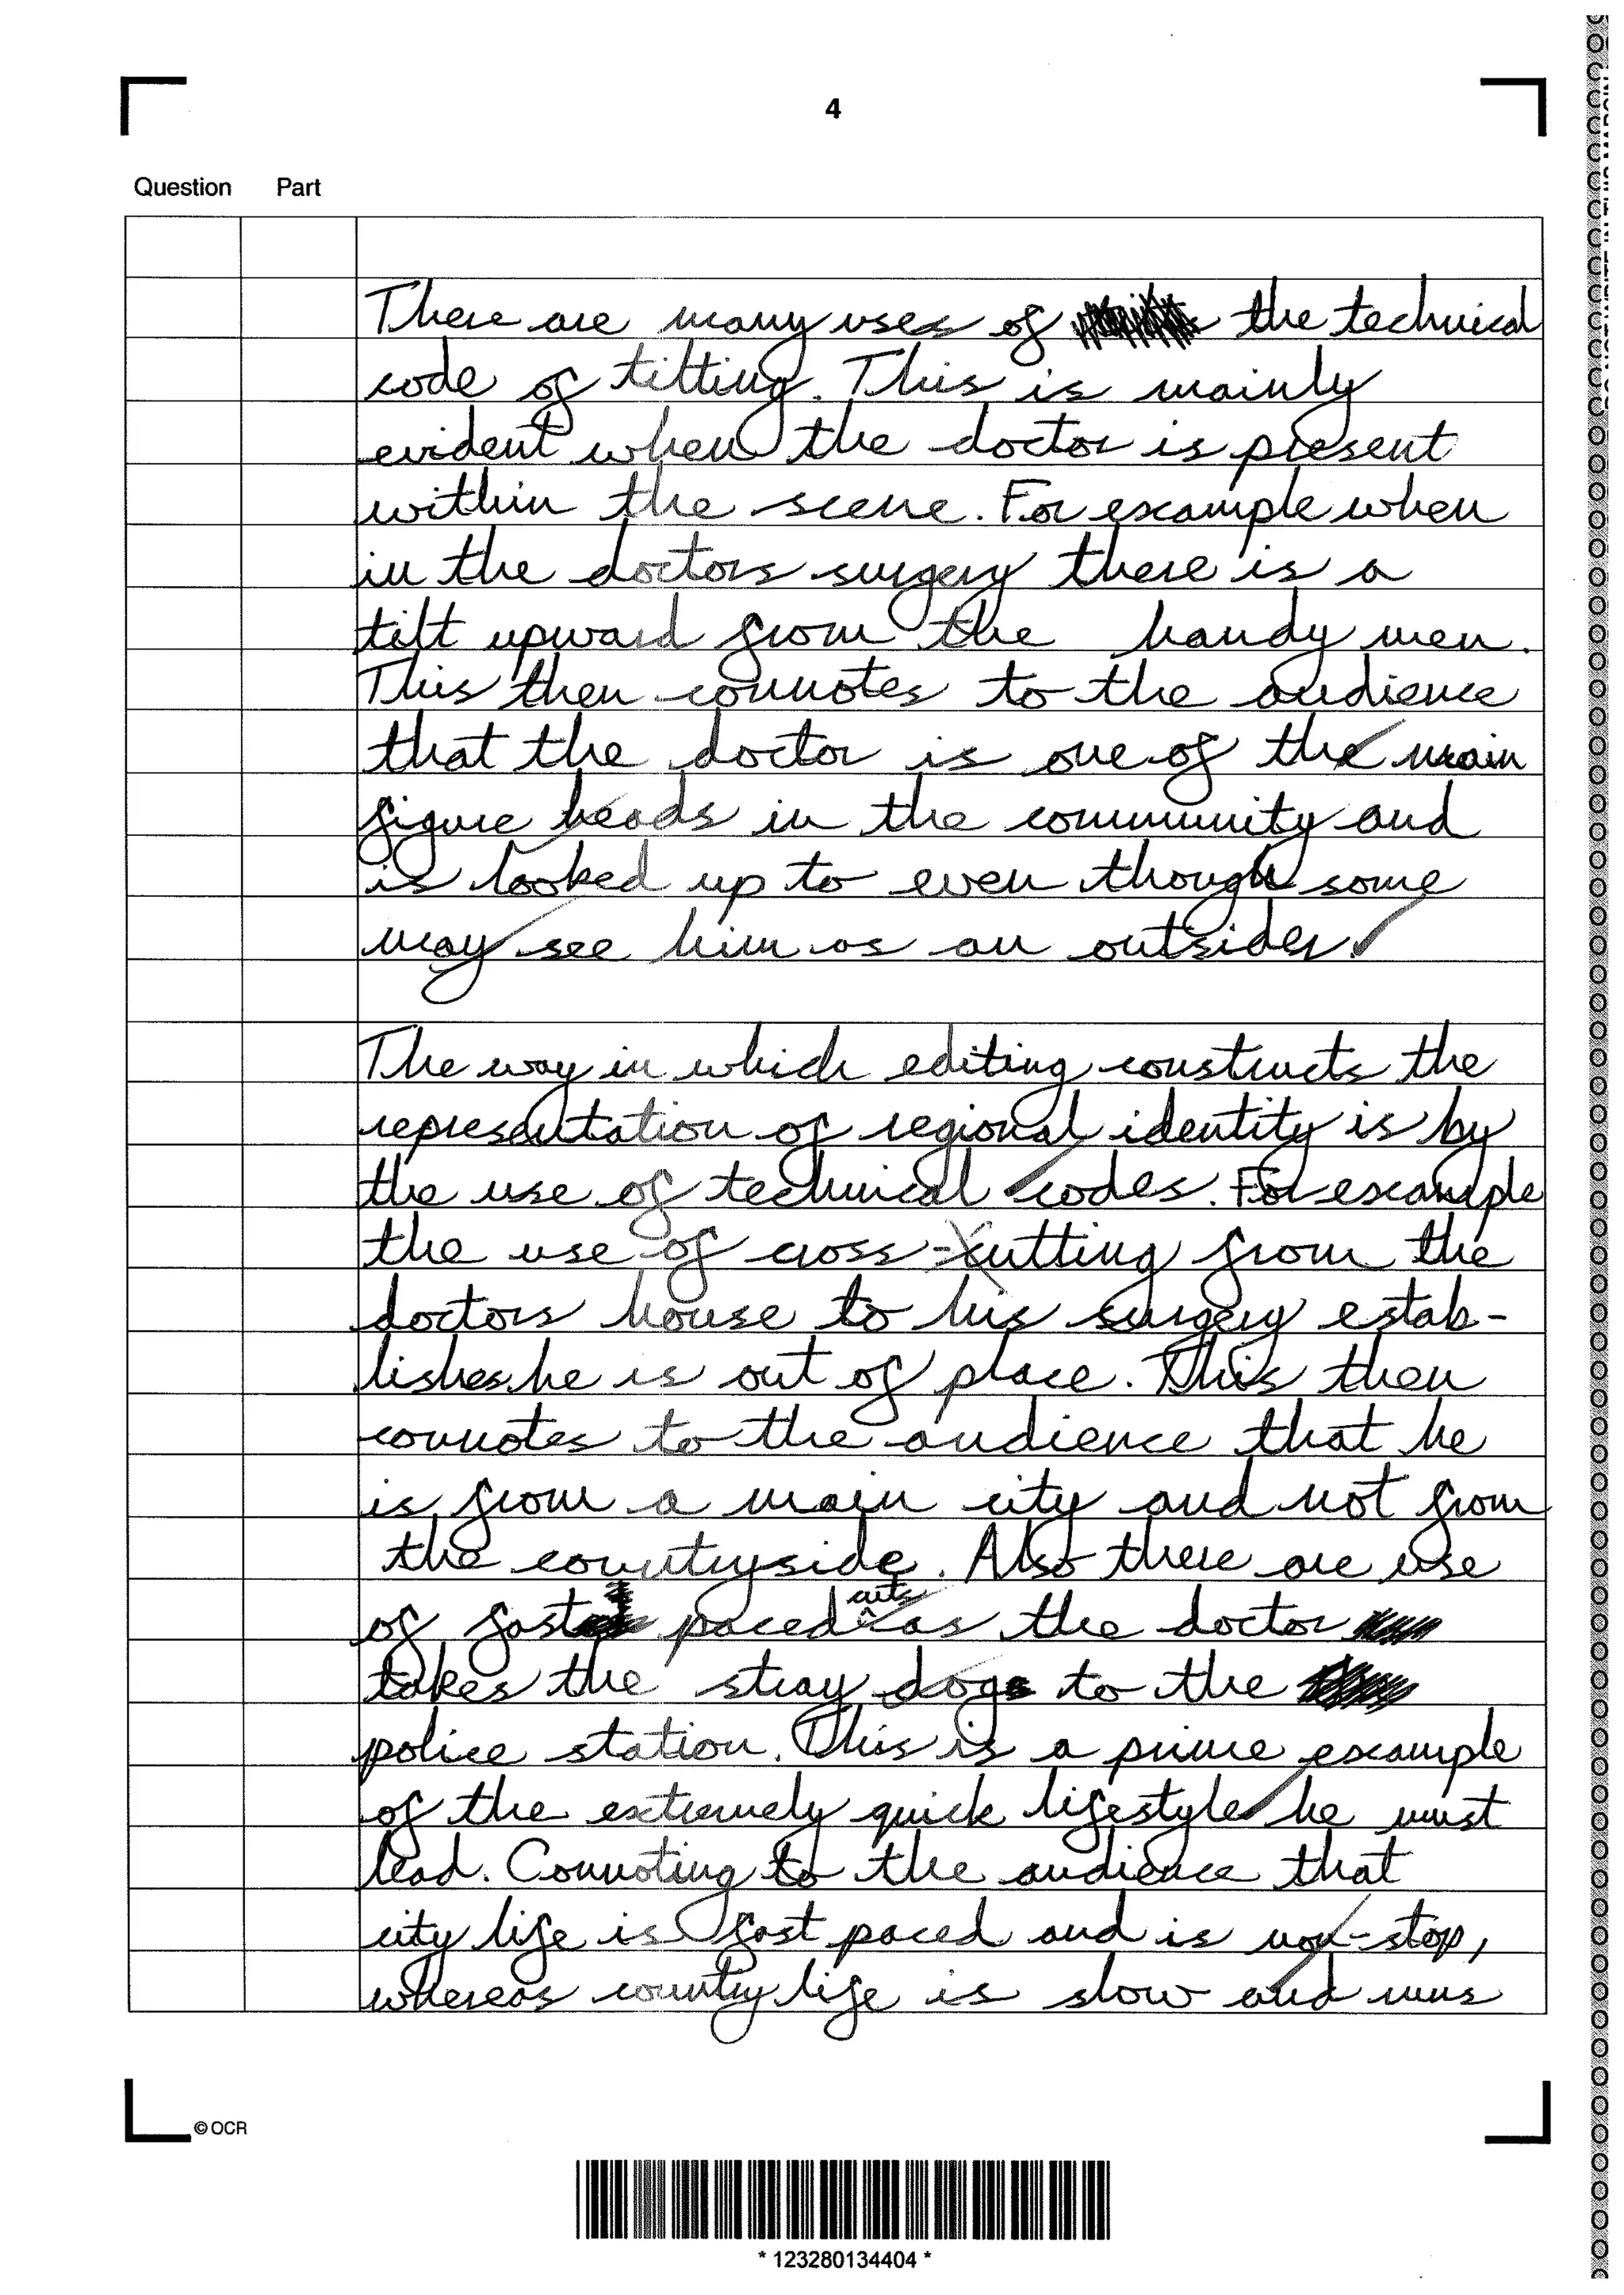 4
Question Part
There are many uses of the technical
code of tilting. This is mainly
evident when the doctor is present
within the scene. For example when
in the doctors surgery there is a
tilt upward from the handy men.
This then connotes to the audience
that the doctor is one of the main
figure heads in the community and
is looked up to even though some
may see him as an outsider.
The way in which editing constructs the
representation of regional identity is by
the use of technical codes. For example
the use of cross-cutting from the
doctors house to his surgery estab-
lishes he is out of place. This then
connotes to the audience that he
is from a main city and not from
the countryside. Also there are use
of fast paced cuts as the doctor
takes the stray dog to the
police station. This is a prime example
of the extremely quick lifestyle he must
lead. Connoting to the audience that
city life is fast paced and is non-stop,
whereas country life is slow and runs
© OCR
* 123280134404 *